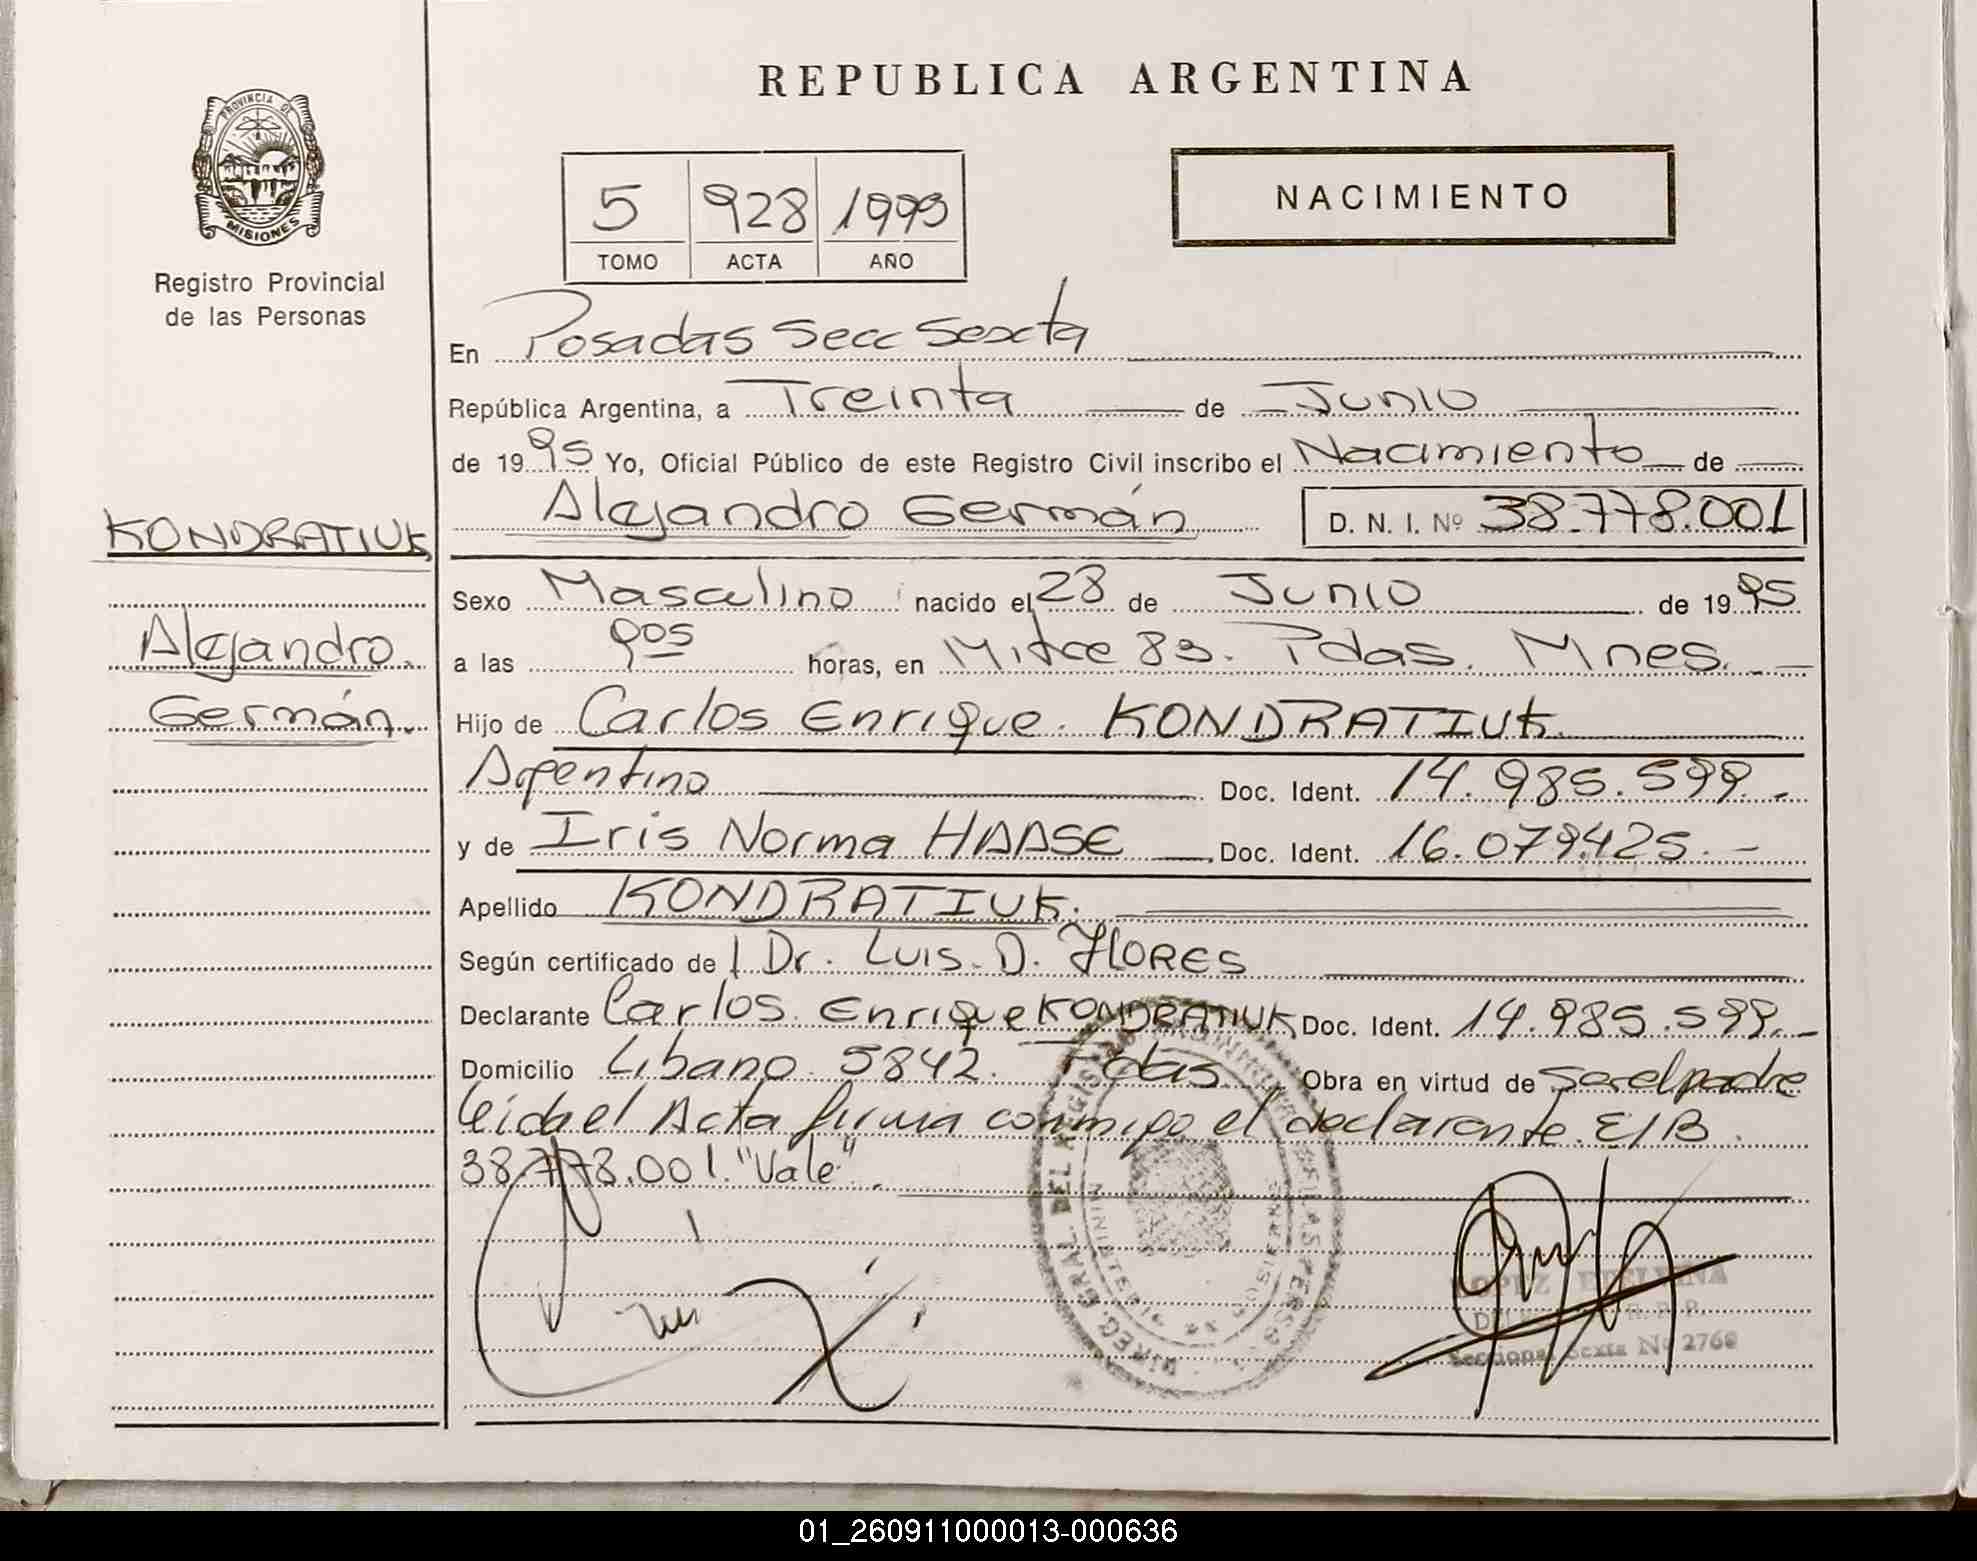 REPUBLICA ARGENTINA
PROVINCIA DE
MISIONES
Registro Provincial
de las Personas
5 928 1995
TOMO ACTA AÑO
NACIMIENTO
En Posadas Secc Sexta
República Argentina, a Treinta de Junio
de 1995 Yo, Oficial Público de este Registro Civil inscribo el Nacimiento de
Alejandro Germán D. N. I. Nº 38.778.001
KONDRATIUK
Alejandro
Germán.
Sexo Masculino nacido el 28 de Junio de 1995
a las 905 horas, en Mitre 83. Pdas. Mnes.
Hijo de Carlos Enrique KONDRATIUK
Argentino Doc. Ident. 14.985.599
y de Iris Norma HAASE Doc. Ident. 16.079.425
Apellido KONDRATIUK.
Según certificado del Dr. Luis. D. FLORES
Declarante Carlos Enrique KONDRATIUK Doc. Ident. 14.985.599
Domicilio Libano 5842. Pdas Obra en virtud de Ser el padre
leida el Acta firma conmigo el declarante. E/B
38.778.001. "Vale"
DIREC. GRAL. DEL REGISTRO
LOPEZ
Seccional Sexta Nº 2768
01_260911000013-000636